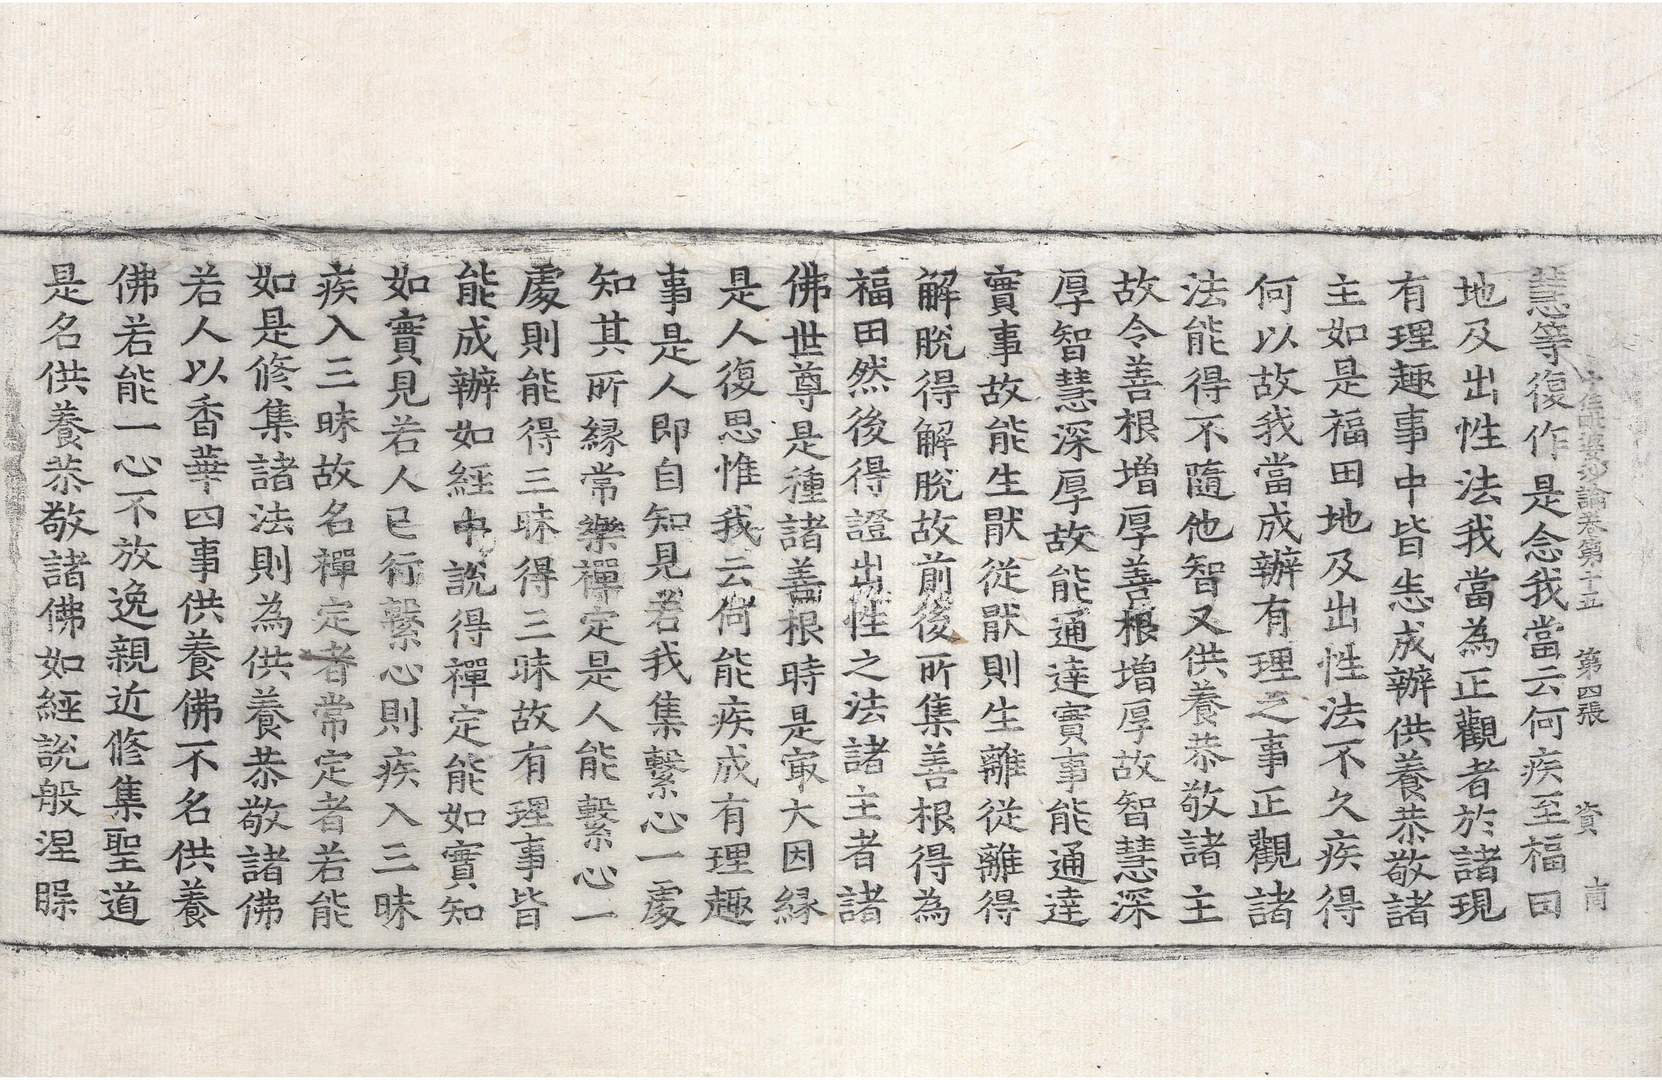 十住毗婆沙論卷第十五 第四張 資
慧等復作是念我當云何疾至福田
地及出性法我當為正觀者於諸現
有理趣事中皆悉成辦供養恭敬諸
主如是福田地及出性法不久疾得
何以故我當成辦有理之事正觀諸
法能得不隨他智又供養恭敬諸主
故令善根增厚善根增厚故智慧深
厚智慧深厚故能通達實事能通達
實事故能生猒從猒則生離從離得
解脫得解脫故前後所集善根得為
福田然後得證出性之法諸主者諸
佛世尊是種諸善根時是㝡大因緣
是人復思惟我云何能疾成有理趣
事是人即自知見若我集繫心一處
知其所緣常樂禪定是人能繫心一
處則能得三昧得三昧故有理事皆
能成辦如經中說得禪定能如實知
如實見若人已行繫心則疾入三昧
疾入三昧故名禪定者常定者若能
如是修集諸法則為供養恭敬諸佛
若人以香華四事供養佛不名供養
佛若能一心不放逸親近修集聖道
是名供養恭敬諸佛如經說般涅時